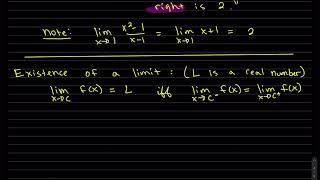 right is 2."
Note: lim x→1 x²-1/x-1 = lim x→1 x+1 = 2
Existence of a limit: (L is a real number)
lim x→c f(x) = L iff lim x→c⁻ f(x) = lim x→c⁺ f(x)